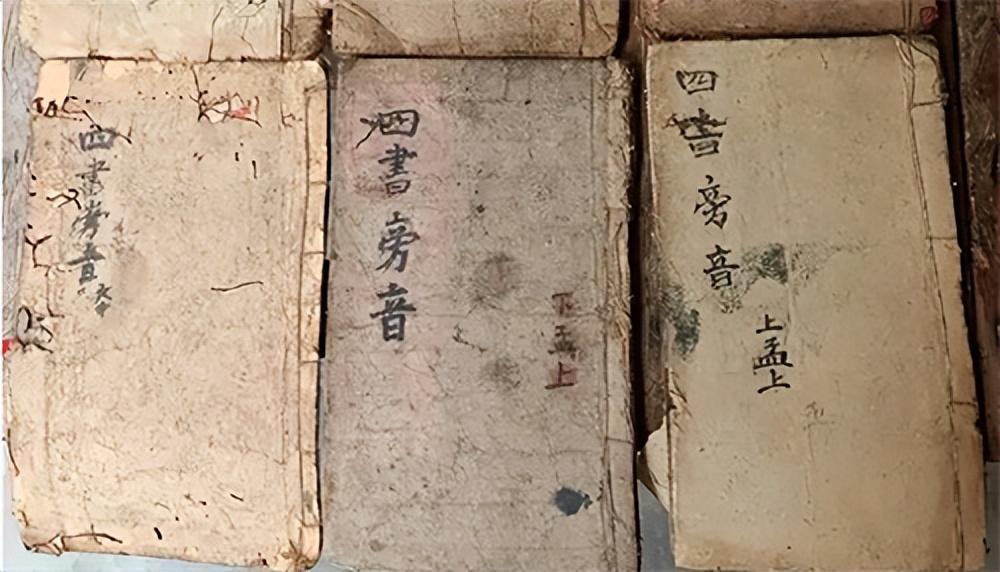 四書旁音
四書旁音
下孟上
四書旁音
上孟上